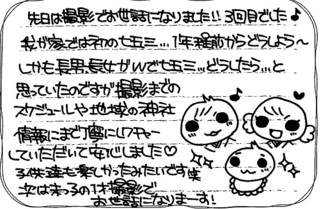 先日は撮影でお世話になりました!! 3回目でした♪
我が家では初の七五三…1年程前からどうしよう〜
しかも長男、長女がWで七五三…どうしたら…と
思っていたのですが撮影までの
スケジュールや地域の神社
情報にまで丁寧にレクチャー
していただいて安心しました♡
子供達も楽しかったみたいです
次は末っ子の1才撮影で
お世話になりまーす!